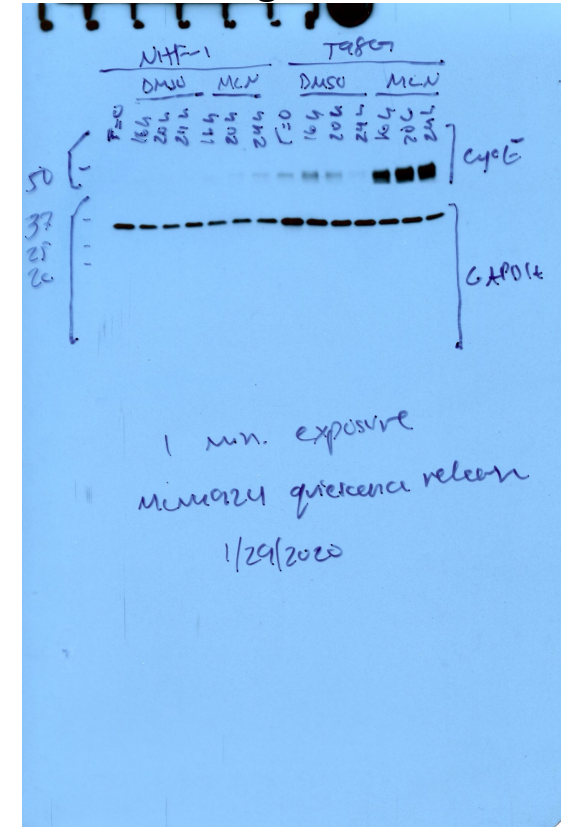 NHF-1 T98G
DMSO MLN DMSO MLN
T=0 16h 20h 24h 16h 20h 24h T=0 16h 20h 24h 16h 20h 24h
CycE
50
37
25
20
GAPDH
1 min. exposure
MLN4924 quiescence release
1/29/2020